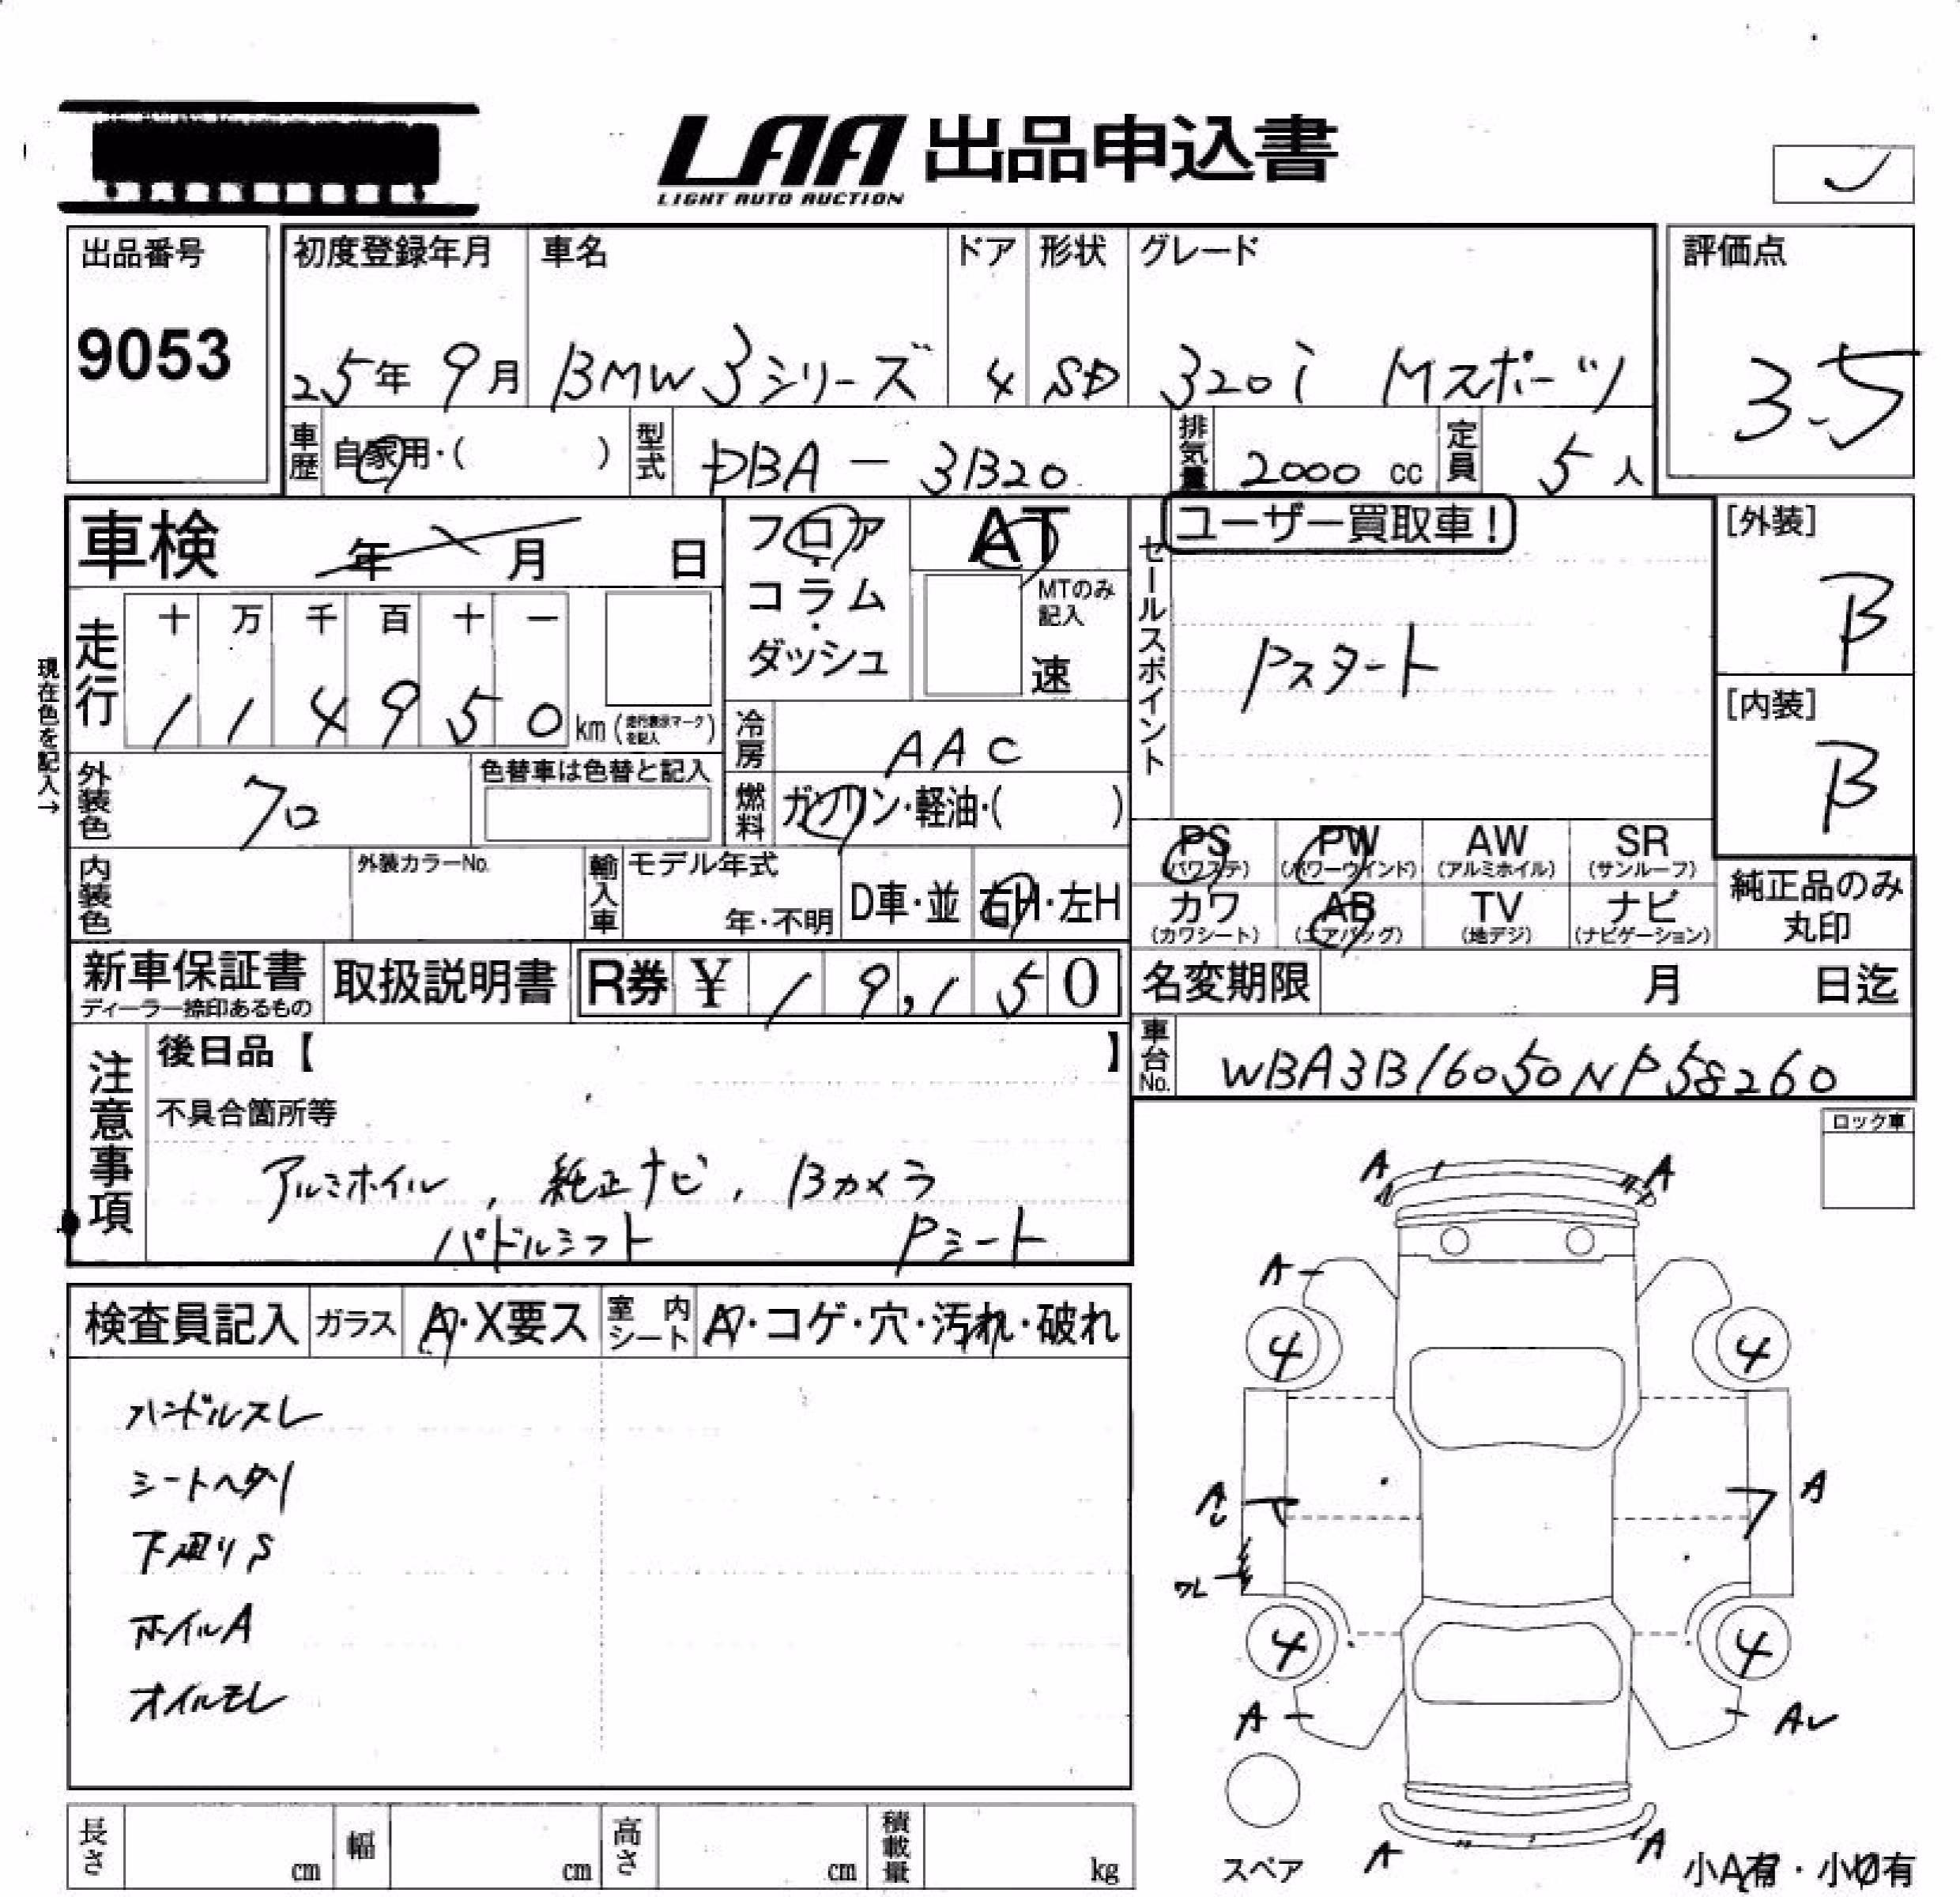 LAA 出品申込書
LIGHT AUTO AUCTION
出品番号 初度登録年月 車名 ドア 形状 グレード 評価点
9053 25年 9月 BMW 3シリーズ 4 SD 320i Mスポーツ 3.5
車歴 自家用・( ) 型式 DBA - 3B20 排気量 2000 cc 定員 5 人
車検 年 月 日
フロア・コラム・ダッシュ
AT
MTのみ記入
速
セールスポイント
ユーザー買取車!
Pスタート
[外装]
B
[内装]
B
現在色を記入→
走行 十 万 千 百 十 一
1 1 4 9 5 0 km (走行表示マークを記入)
冷房 AAC
外装色 クロ 色替車は色替と記入
燃料 ガソリン・軽油・( )
PS (パワステ) PW (パワーウインド) AW (アルミホイル) SR (サンルーフ)
カワ (カワシート) AB (エアバッグ) TV (地デジ) ナビ (ナビゲーション)
純正品のみ丸印
内装色 外装カラーNo. 輸入車 モデル年式 年・不明 D車・並 右H・左H
新車保証書 ディーラー捺印あるもの 取扱説明書 R券 ¥ 1 9,1 5 0
名変期限 月 日迄
車台No. WBA3B16050NP58260
注意事項
後日品【 】
不具合箇所等
アルミホイル , 純正ナビ , Bカメラ
パドルシフト Pシート
ロック車
検査員記入 ガラス A・X要ス 室内シート A・コゲ・穴・汚れ・破れ
ハンドルスレ
シートヘタリ
下廻りS
ホイルA
オイルモレ
A A
A
4 4
A
ワレ
4 4
A
スペア
A A
小A有・小U有
長さ cm 幅 cm 高さ cm 積載量 kg